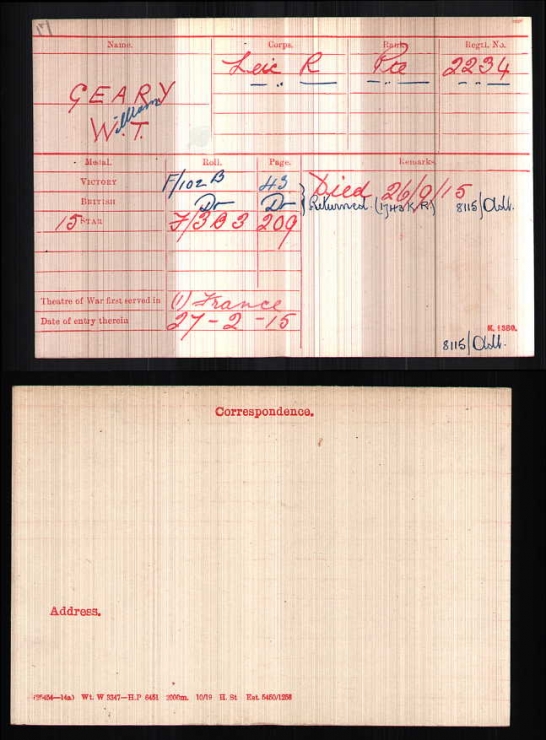 Name. Corps. Rank. Regtl. No.
Leic R Pte 2234
GEARY
William
W.T.
Medal. Roll. Page. Remarks.
VICTORY F/102 B 43 Died 26/9/15
BRITISH Do Do Returned (1743 K.R.) 8115/Adt.
15 STAR F/3B3 209
Theatre of War first served in (1) France
Date of entry therein 27-2-15
K. 1380.
8115/Adt.
Correspondence.
Address.
Wt. W 5347—H.P 6451 2000m. 10/19 H. St Est. 5450/1258